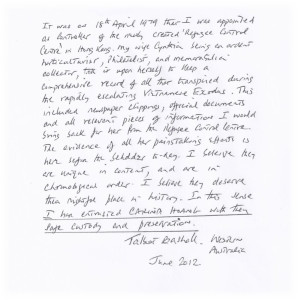 It was on 18th April 1979 that I was appointed
as Controller of the newly created 'Refugee Control
Centre' in Hong Kong. My wife Cynthia being an ardent
horticulturist, Philatelist, and memorabilia
collector, took it upon herself to keep a
comprehensive record of all that transpired during
the rapidly escalating Vietnamese Exodus. This
included newspaper clippings, official documents
and all relevant pieces of information I would
bring back for her from the Refugee Control Centre.
The evidence of all her painstaking efforts is
here before the beholder to-day. I believe they
are unique in content, and are in
chronological order. I believe they deserve
their rightful place in history. In this sense
I have entrusted with their
safe custody and preservation.
Talbot Bashall. Western
Australia
June 2012.